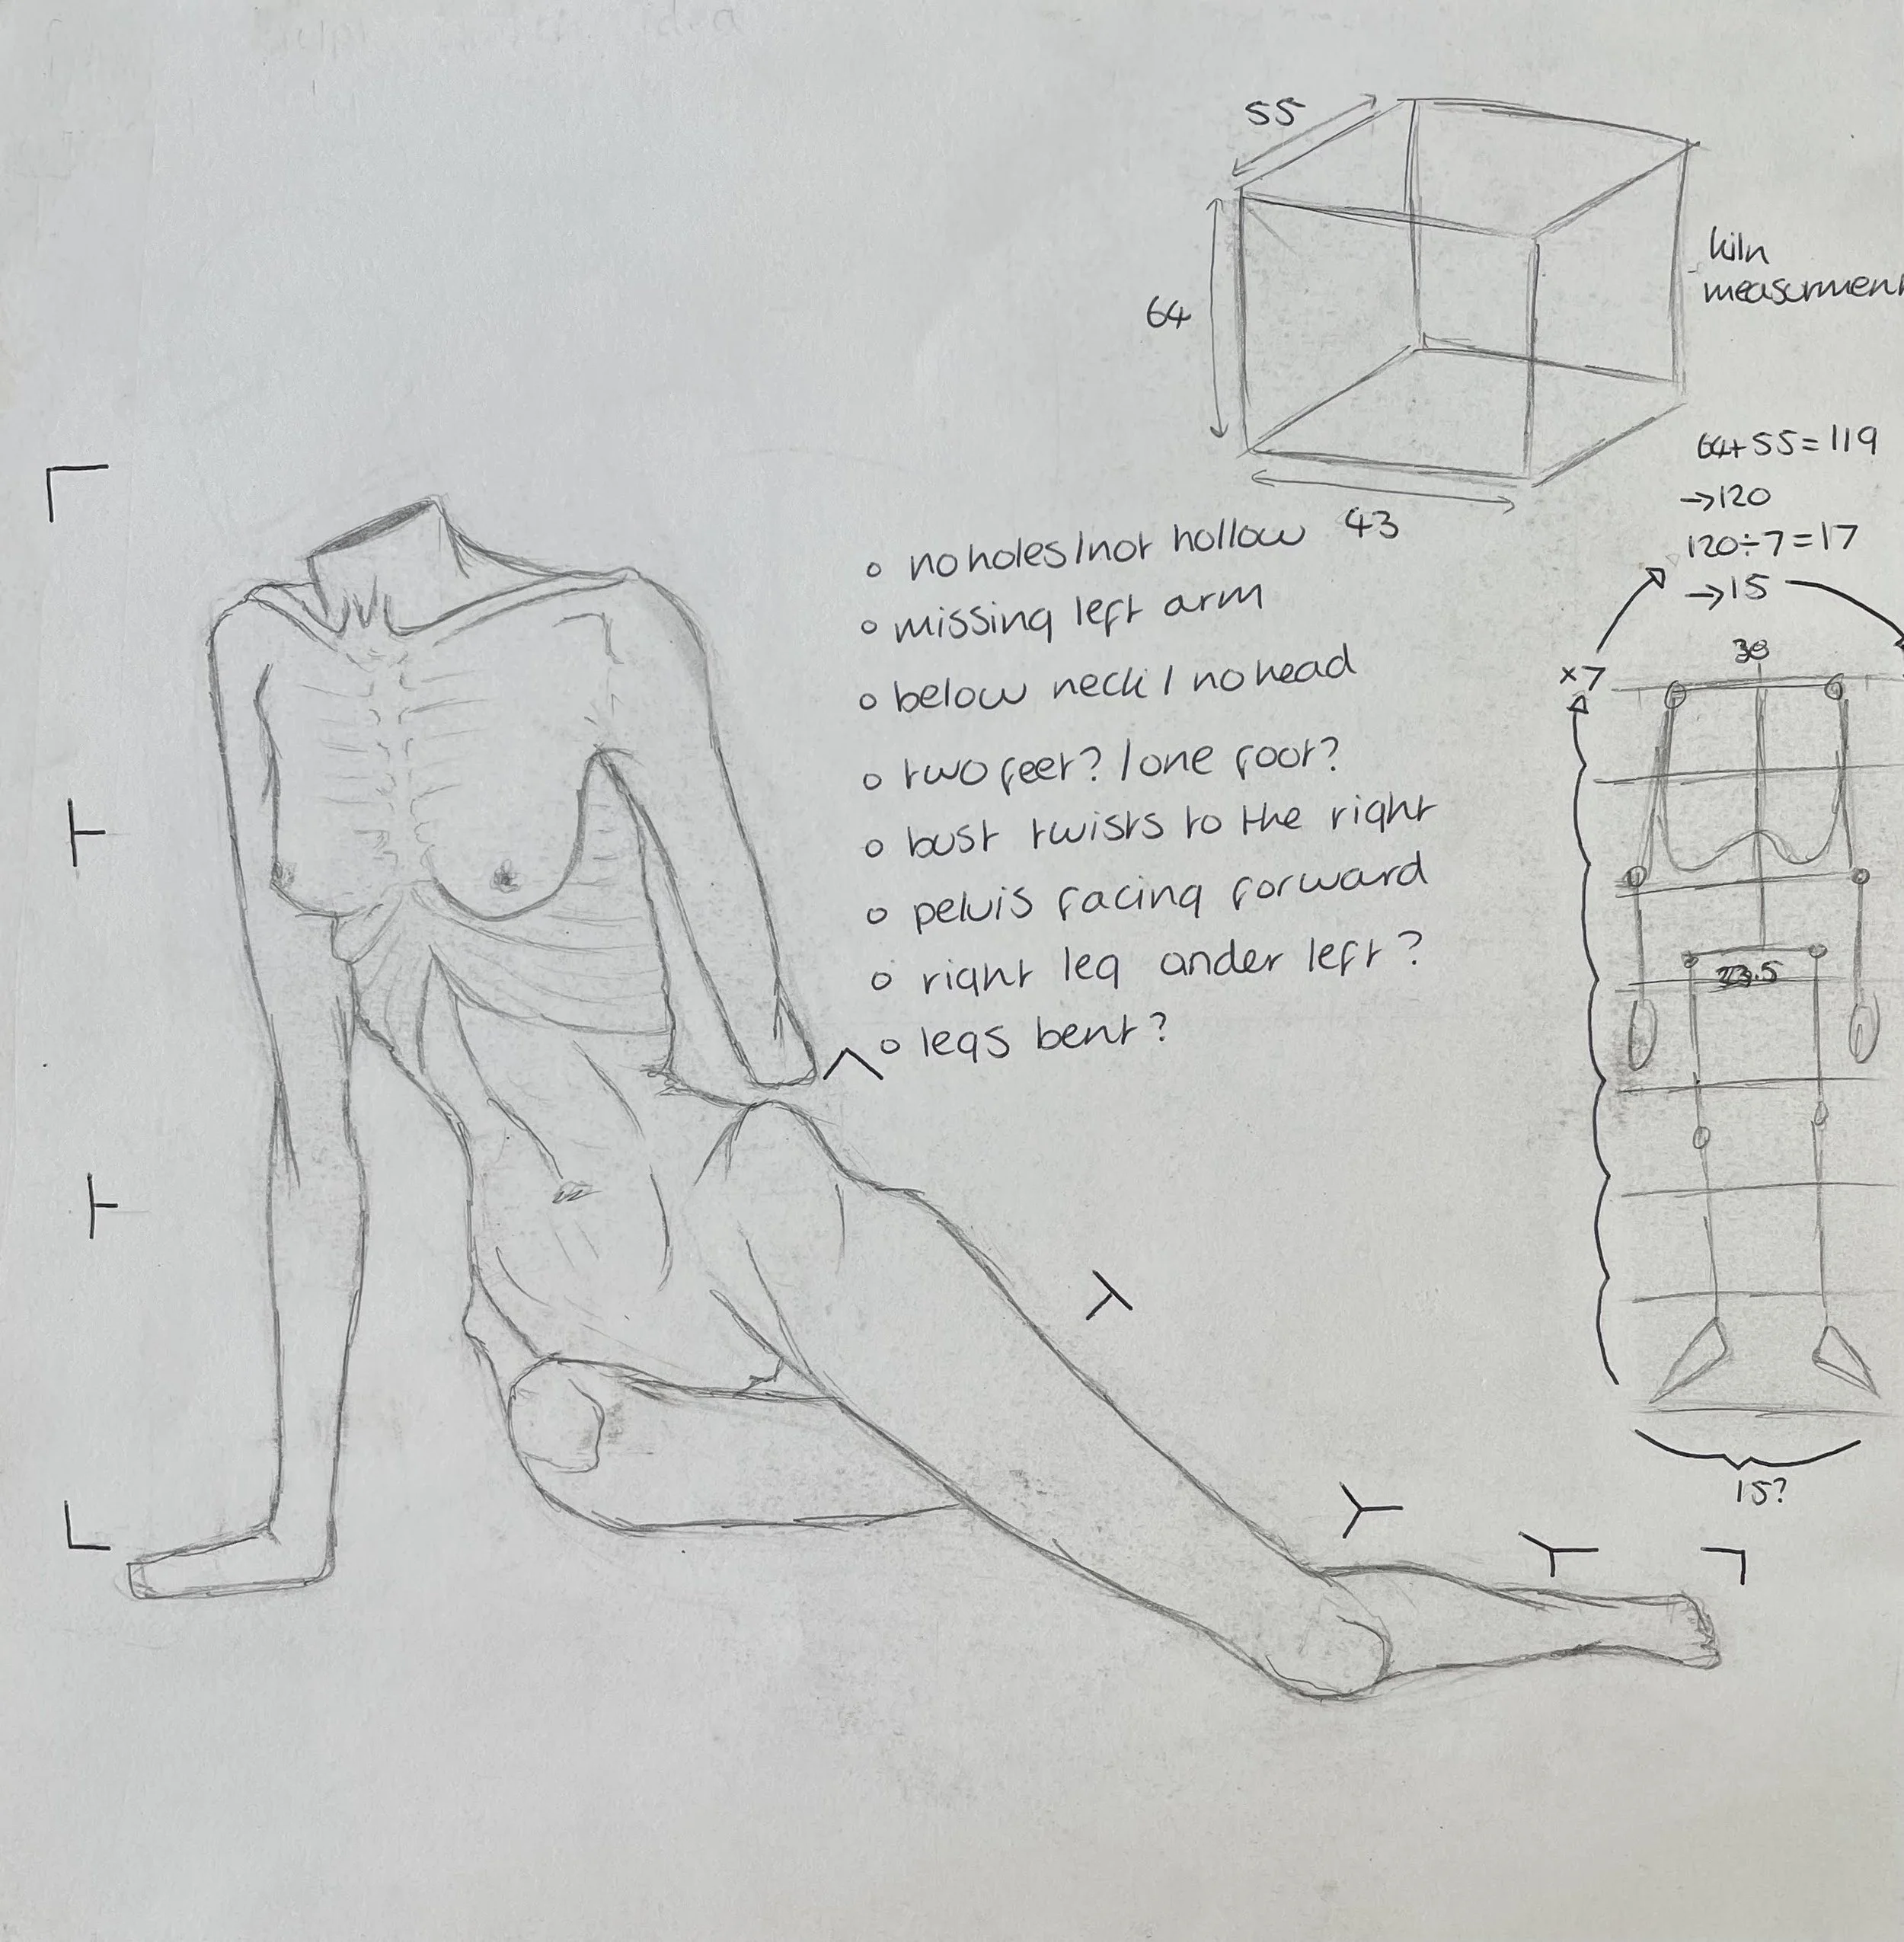 55
64
43
kiln
measurment
64+55=119
→120
120÷7=17
→15
×7
38
23.5
15?
○ no holes/not hollow
○ missing left arm
○ below neck / no head
○ two feet? / one foot?
○ bust twists to the right
○ pelvis facing forward
○ right leg under left?
○ legs bent?